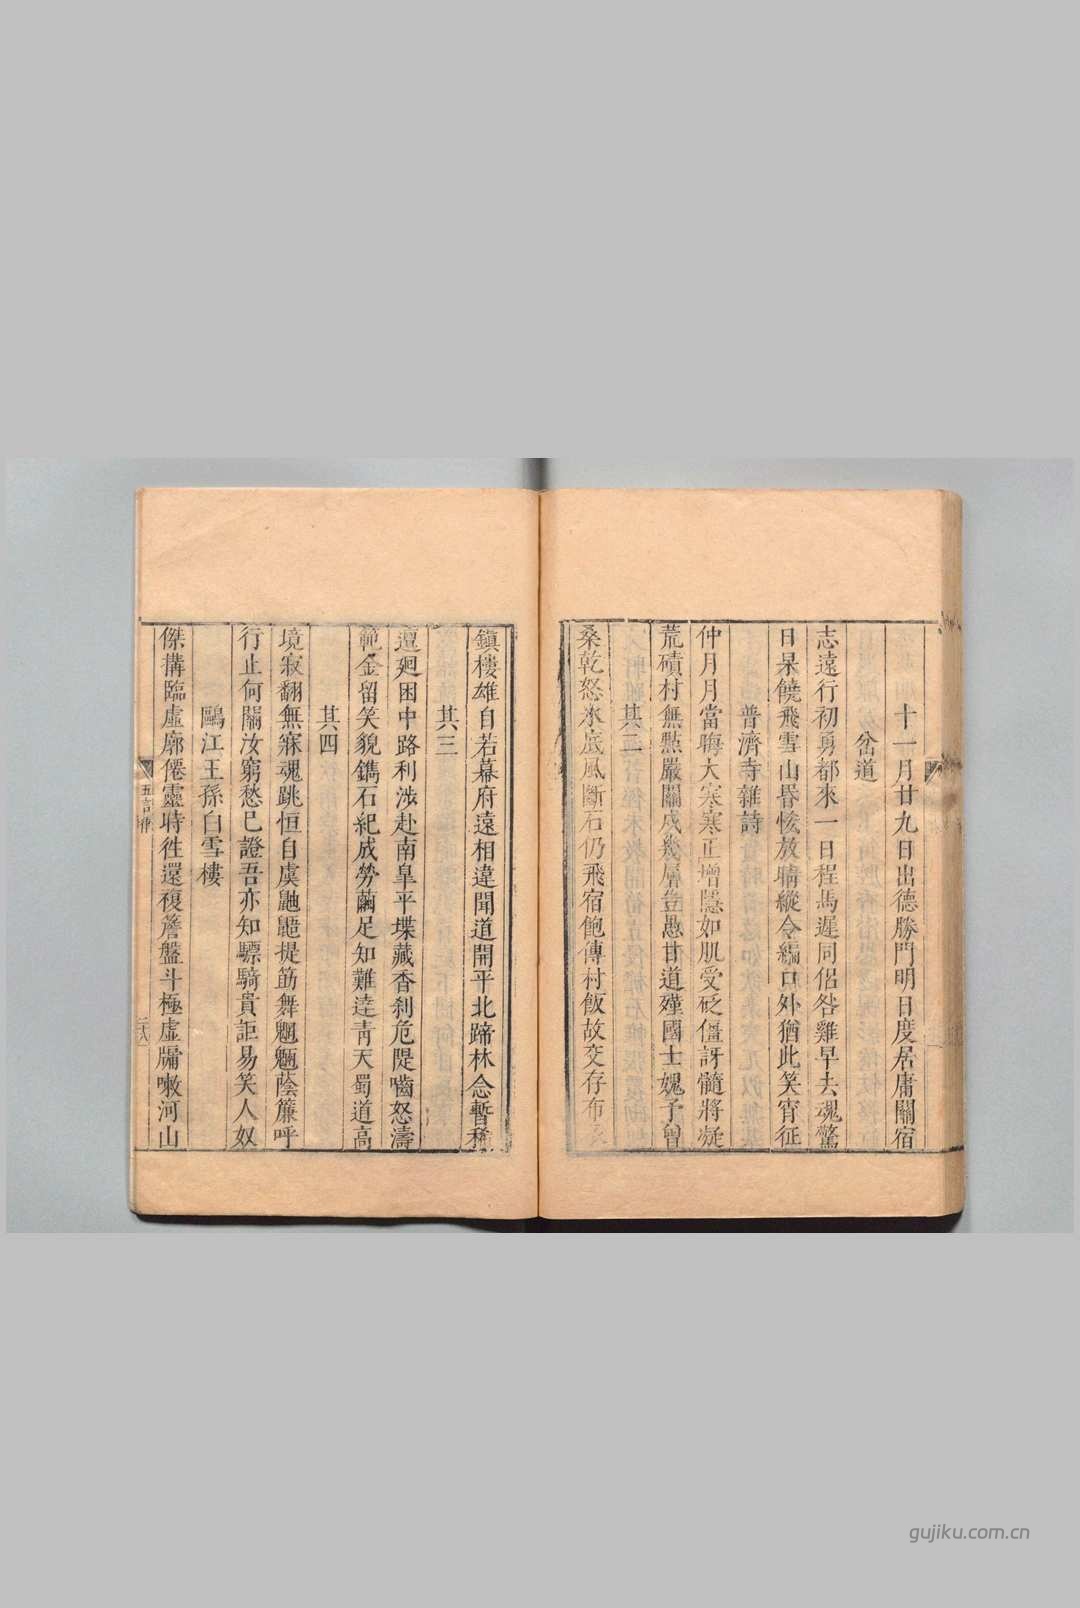 十一月廿九日出德勝門明日度居庸關宿
岔道
志遠行初勇都來一日程馬遲同侶咎雞早去魂驚
日杲饒飛雪山昏恡放晴縱令編口外猶此笑宵征
普濟寺雜詩
仲月月當晦大寒寒正增隱如肌受砭僵訝髓將凝
荒磧村無點嚴關戍幾層豈愚甘道殣國士媿予曾
其二
桑乾怒氷底風斷石仍飛宿飽傳村飯故交存布
鎮樓雄自若幕府遠相違聞道開平北蹛林念暫稀
其三
邅廻困中路利涉赴南皐平堞藏香刹危隄嚙怒濤
範金留笑貌鐫石紀成勞繭足知難逹靑天蜀道高
其四
境寂翻無寐魂跳恒自虞鼪鼯提筋舞魍魎蔭簾呼
行止何關汝窮愁已證吾亦知驃騎貴詎易笑人奴
鷗江王孫白雪樓
傑搆臨虛廓僊靈時徃還複簷盤斗極虛牖嗽河山
五言律
二八
gujiku.com.cn